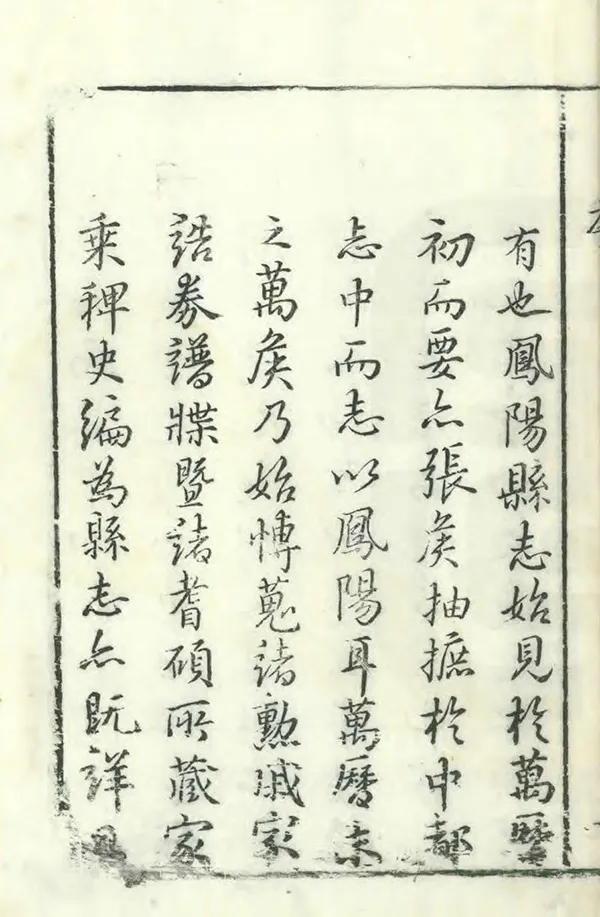 有也鳳陽縣志始見於萬曆
初而要亦張矦抽摭於中都
志中而志以鳳陽耳萬曆末
之萬矦乃始博蒐諸勳戚家
誥券譜牒暨諸耆碩所藏家
乘稗史編為縣志亦既詳